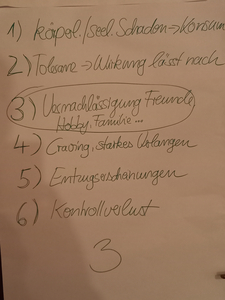 1) körperl./seel. Schaden→Konsum
2) Toleranz→Wirkung lässt nach
3) Vernachlässigung Freunde
Hobby, Familie...
4) Craving, starkes Verlangen
5) Entzugserscheinungen
6) Kontrollverlust
3